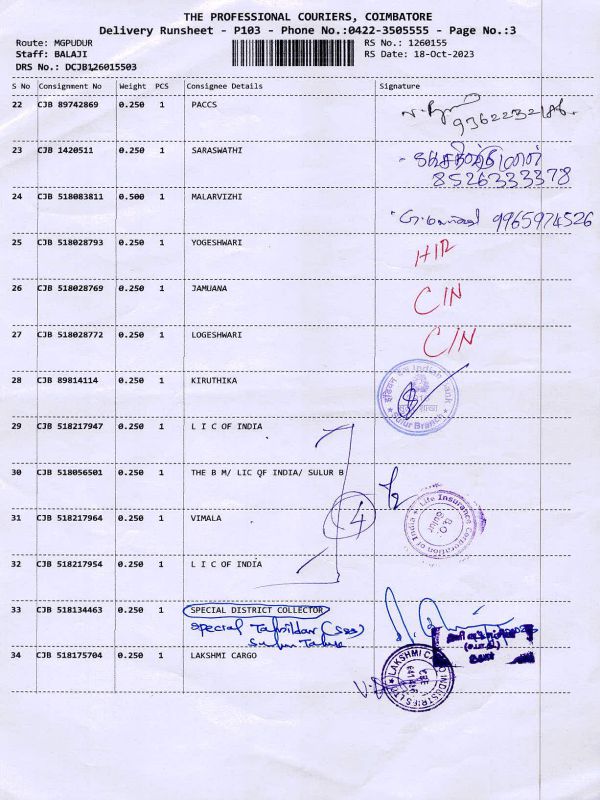 THE PROFESSIONAL COURIERS, COIMBATORE
Delivery Runsheet - P103 - Phone No.:0422-3505555 - Page No.:3
Route: MGPUDUR RS No.: 1260155
Staff: BALAJI RS Date: 18-Oct-2023
DRS No.: DCJB126015503
S No Consignment No Weight PCS Consignee Details Signature
22 CJB 89742869 0.250 1 PACCS
9362232186.
23 CJB 1420511 0.250 1 SARASWATHI
8526333378
24 CJB 518083811 0.500 1 MALARVIZHI
9965974526
25 CJB 518028793 0.250 1 YOGESHWARI
26 CJB 518028769 0.250 1 JAMUANA C/N
27 CJB 518028772 0.250 1 LOGESHWARI C/N
28 CJB 89814114 0.250 1 KIRUTHIKA
Indian Bank
Sulur Branch
29 CJB 518217947 0.250 1 L I C OF INDIA
30 CJB 518056501 0.250 1 THE B M/ LIC OF INDIA/ SULUR B
31 CJB 518217964 0.250 1 VIMALA 4
Life Insurance Corporation of India
B.O.
Sulur
32 CJB 518217954 0.250 1 L I C OF INDIA
33 CJB 518134463 0.250 1 SPECIAL DISTRICT COLLECTOR
Special Tahsildar (SSS)
Sulur Taluk
34 CJB 518175704 0.250 1 LAKSHMI CARGO
LAKSHMI CARGO INDUSTRIES LTD